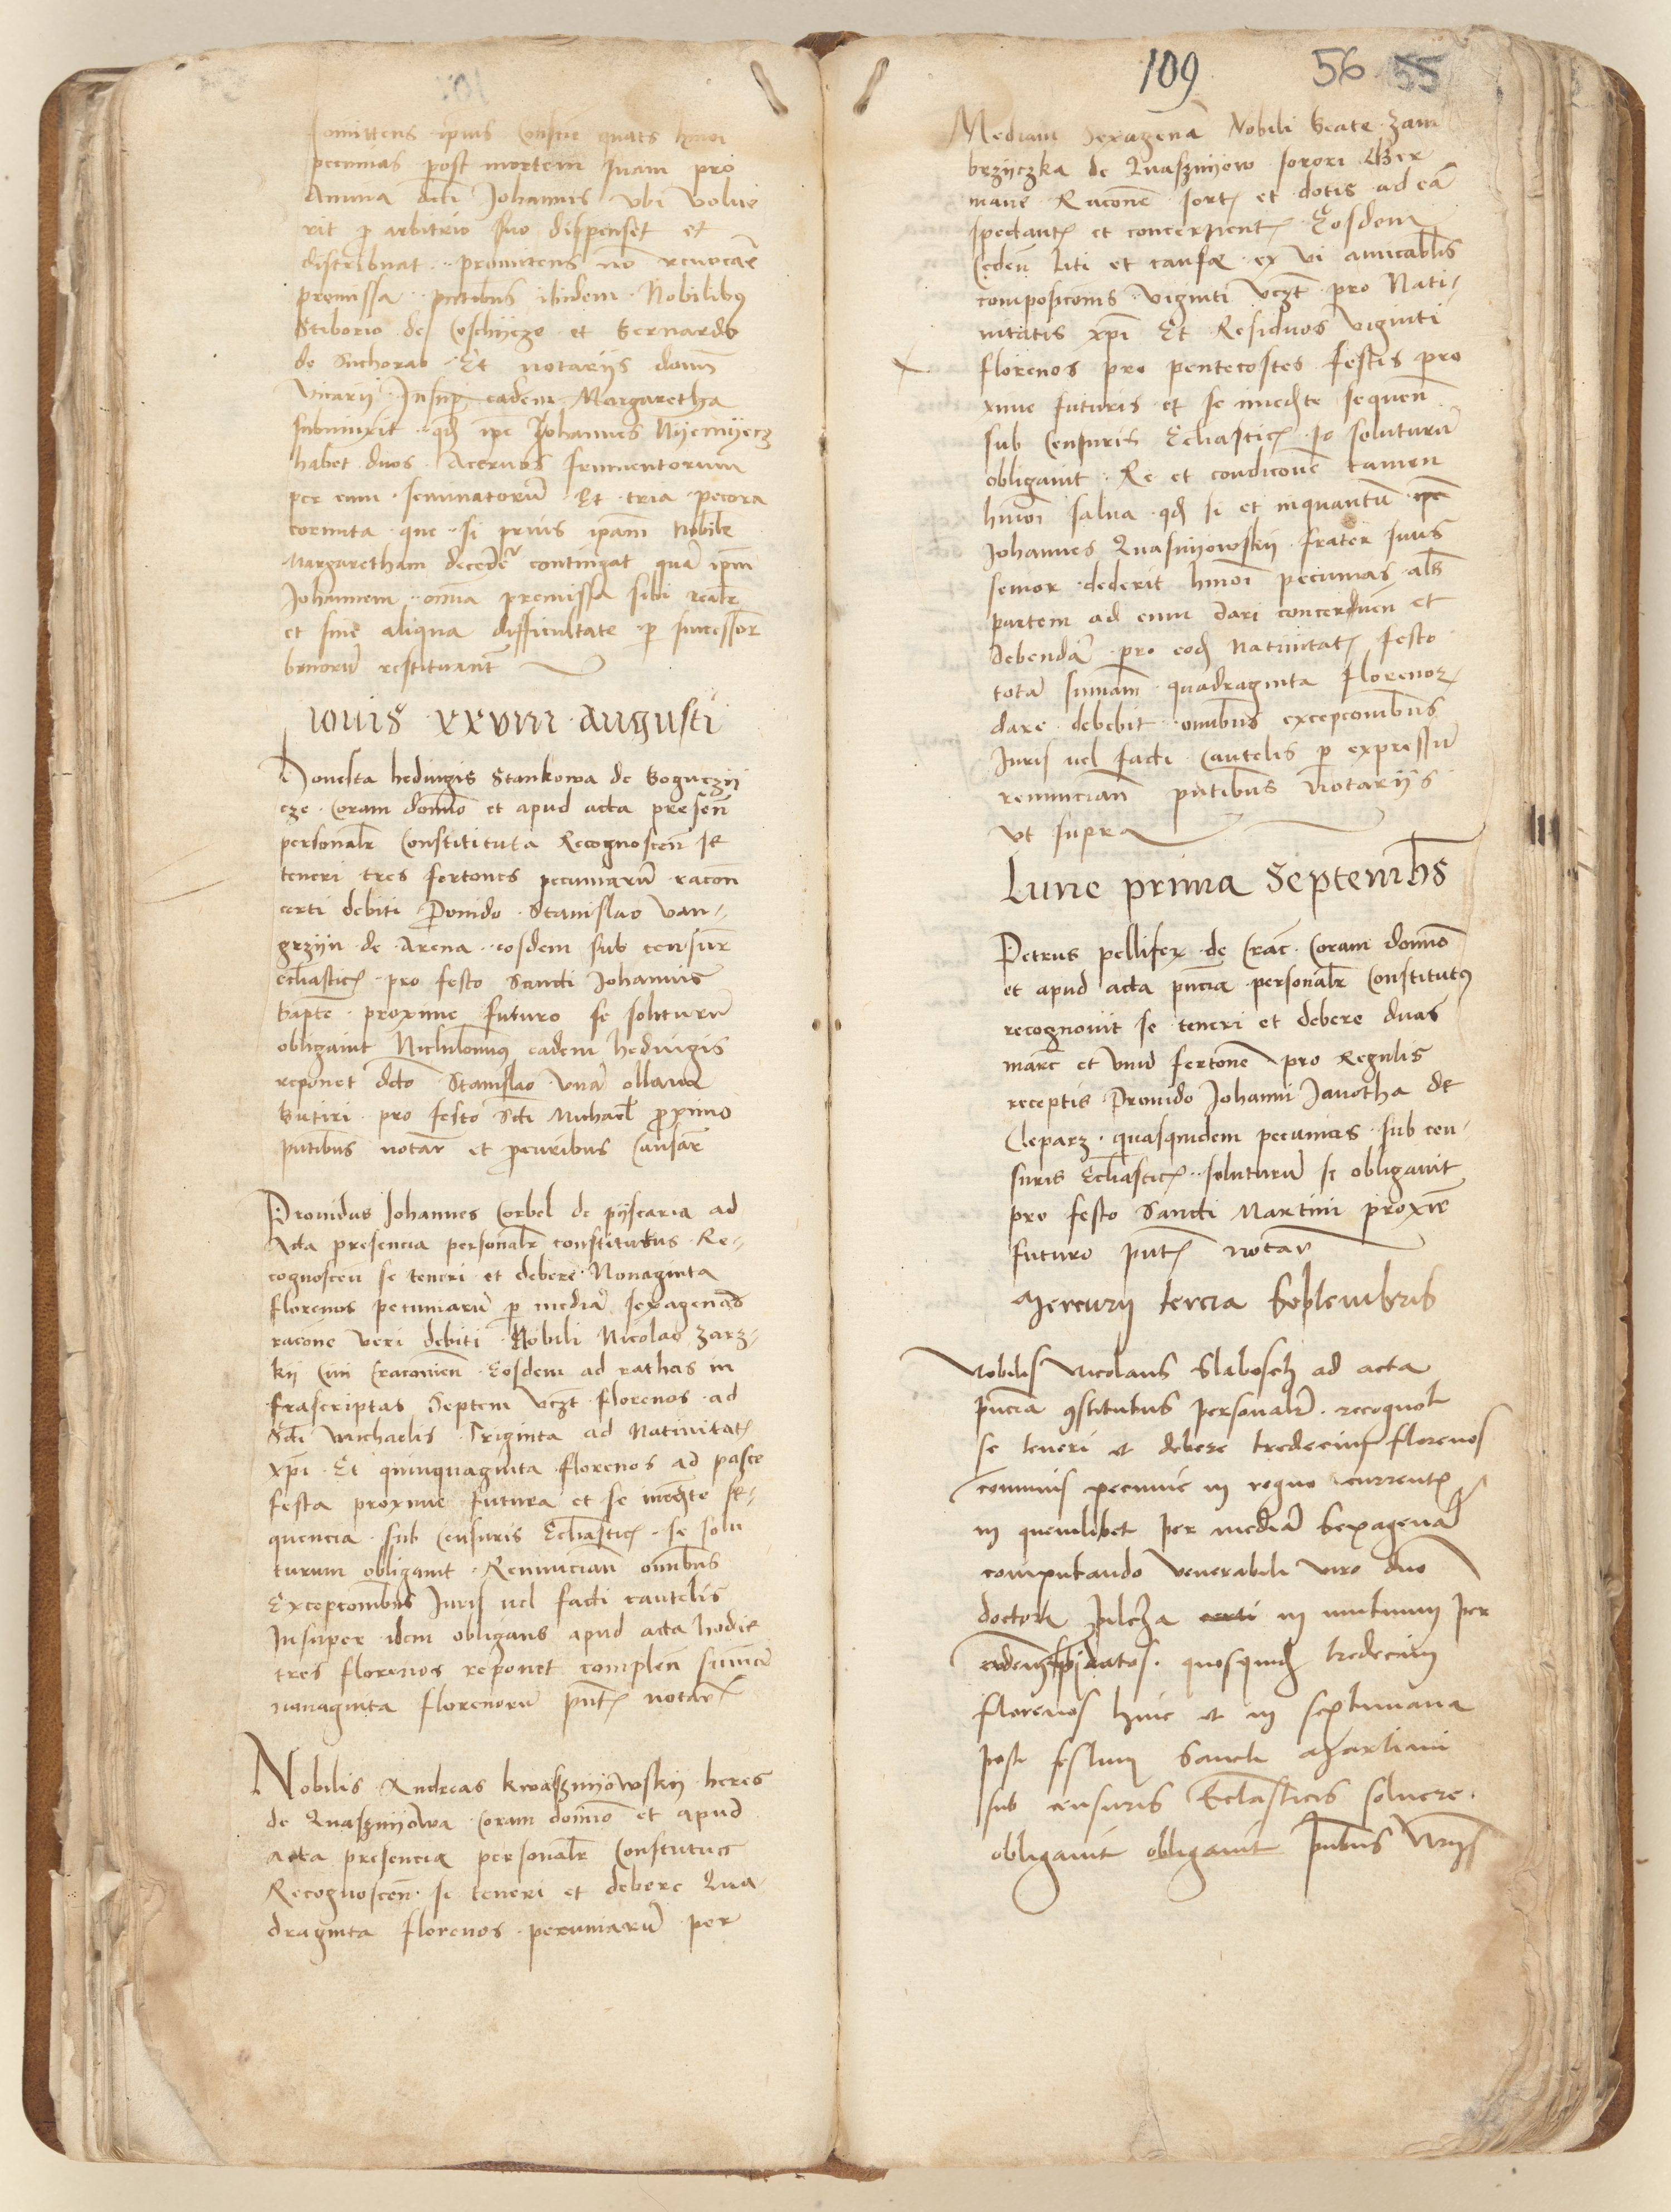 pecunias post mortem suam pro
Anima dicti Johannis vbi volue
rit p arbitrio suo dispenset et
distribuat promittens no reuocare
premissa pntibus ibidem Nobilibus
Stiborio de Coschycze et Bernardo
de Suchorab Et notariis domni
vicarii Insup eadem Margaretha
subiunxit qd ipe Johannes Nyemyecz
habet duos Aceruos frumentorum
per eum seminatorum Et tria pecora
cornuta que si prius ipam Nobile
Margaretham decedere contingat qua ipm
Johannem omnia premissa sibi realr
et sine aliqua difficultate p successor
bonorum restituant
Iouis xxviii Augusti
Honesta hedwigis Stankowa de Boguczy
cze Coram domino et apud acta presen
personalr Constitituta Recognoscen se
teneri tres fertones pecuniaru racon
certi debiti Prouido Stanislao van
grzyn de Arena eosdem sub censur
ecliastic pro festo Sancti Johannis
bapte proxime futuro se soluturu
obligauit Nichilominus eadem hedwigis
reponet dicto Stanislao vna ollam
butiri pro festo Scti Michael proximo
pntibus notar et pcuribus Causar
Prouidus Johannes Corbel de pyscaria ad
Acta presencia personalr constitutus Re
cognoscen se teneri et debere Nonaginta
florenos pecuniaru p media sexagenas
racone veri debiti Nobili Nicolao zarz
ky Ciui Cracouien Eosdem ad rathas in
frascriptas Septem vczt florenos ad
Scti Michaelis Triginta ad Natiuitat
xpi Et quinquaginta florenos ad pasce
festa proxime futura et se inmedte se
quencia sub Censuris Ecliastic se solu
turum obligauit Renuncian omnibus
Excepconibus Juris uel facti cautelis
Insuper idem obligans apud acta hodie
tres florenos reponet complen summa
nonaginta florenoru pnt notar
Nobilis Andreas kwaszmyowsky heres
de Quaszmyowa Coram domino et apud
acta presencia personalr Constutus
Recognoscen se teneri et debere Qua
draginta florenos pecuniaru per
109 56 55
Mediam Sexagena Nobili beate zam
brzyczka de Quaszmyow sorori
mane Racone sort et dotis ad ea
spectant et concernent Eosdem
Ceden liti et causse ex vi amicablis
composiconis viginti vczt pro Nati
uitatis xpi Et Residuos viginti
florenos pro pentecostes festis pro
xime futuris et se inmedte sequen
sub Censuris Ecliastic se soluturu
obligauit Re et condicone tamen
hmoi salua qd si et inquantu ipe
Johannes Quasmyowsky frater suus
senior dederit hmoi pecunias als
partem ad eum dari concernen et
debenda pro eod Natiuitat festo
tota summam quadraginta florenor
dare debebit omnibus excepconibus
Juris uel facti Cautelis p expressu
renuncian pntibus Notariis
vt supra
Lune prima Septembris
Petrus pellifex de Crac Coram domino
et apud acta pncia personalr Constitutus
recognouit se teneri et debere duas
marc et vnu fertone pro Regulis
receptis Prouido Johanni Janotha de
Cleparz quasquidem pecunias sub cen
suris Ecliastic soluturu se obligauit
pro festo Sancti Martini proxie
futuro pnt notar
Mercurii tercia Septembris
Nobilis Nicolaus Slabosch ad acta
pncia constitutus personalr recognot
se teneri et debere tredecim florenos
communis pecunie in regno current
in quemlibet per media sexagena
computando venerabili viro dno
doctori certi in mutuum per
quosquid tredecim
florenos hinc et in septimana
post festum Sancti Martini
sub censuris Ecclasticis soluere
obligauit obligauit pntibus Nriis